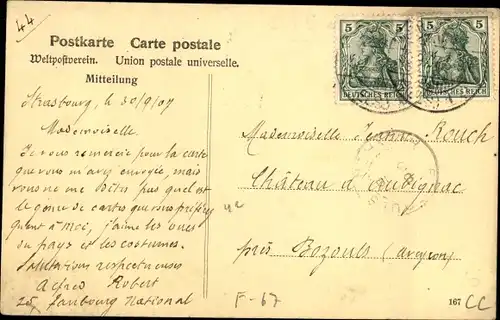 44
Postkarte Carte postale
Weltpostverein. Union postale universelle.
Mitteilung
5 5
DEUTSCHES REICH DEUTSCHES REICH
Strasbourg, le 30/9/07
Mademoiselle
Je vous remercie pour la carte
que vous m'avez envoyée, mais
vous ne me dites pas quel est
le genre de cartes que vous préfér
quant à moi, j'aime les vues
du pays et les costumes.
Salutations respectueuses
Alfred Robert
25, faubourg National
Mademoiselle Rouch
Château d
près Bozouls (Aveyron)
F-67
167 CC